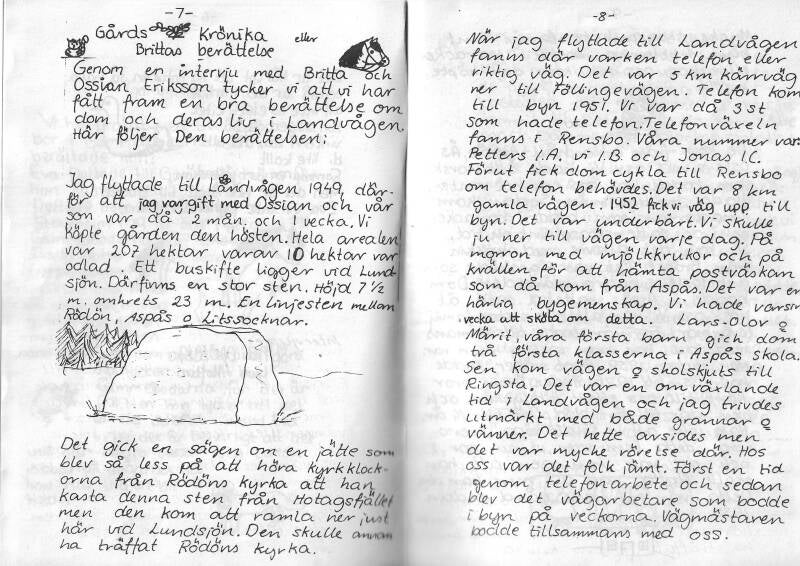 -7-
Gårds Krönika eller
Brittas berättelse
Genom en intervju med Britta och
Ossian Eriksson tycker vi att vi har
fått fram en bra berättelse om
dom och deras liv i Landvågen.
Här följer Den berättelsen:
Jag flyttade till Landvågen 1949, där-
för att jag var gift med Ossian och vår
son var då 2 mån. och 1 vecka. Vi
köpte gården den hösten. Hela arealen
var 207 hektar varav 10 hektar var
odlad. Ett buskifte ligger vid Lund
sjön. Där finns en stor sten. Höjd 7 ½
m. omkrets 23 m. En linjesten mellan
Rödön, Aspås o Litssocknar.
Det gick en sägen om en jätte som
blev så less på att höra kyrkklock-
orna från Rödöns kyrka att han
kasta denna sten från Hotagsfjället
men den kom att ramla ner just
här vid Lundsjön. Den skulle annan
ha träffat Rödöns kyrka.
-8-
När jag flyttade till Landvågen
fanns där varken telefon eller
riktig väg. Det var 5 km kärrväg
ner till Föllingevägen. Telefon kom
till byn 1951. Vi var då 3 st
som hade telefon. Telefonväxeln
fanns i Rensbo. Våra nummer var:
Petters 1.A. vi 1.B. och Jonas 1.C.
Förut fick dom cykla till Rensbo
om telefon behövdes. Det var 8 km
gamla vägen. 1952 fick vi väg upp till
byn. Det var underbart. Vi skulle
ju ner till vägen varje dag. På
morron med mjölkkrukor och på
kvällen för att hämta postväskan
som då kom från Aspås. Det var en
härlig bygemenskap. Vi hade varsin
vecka att sköta om detta. Lars-Olov o
Märit, våra första barn gick dom
två första klasserna i Aspås skola.
Sen kom vägen o skolskjuts till
Ringsta. Det var en omväxlande
tid i Landvågen och jag trivdes
utmärkt med både grannar o
vänner. Det hette avsides men
det var myche rörelse där. Hos
oss var det folk jämt. Först en tid
genom telefonarbete och sedan
blev det vägarbetare som bodde
i byn på veckorna. Vägmästaren
bodde tillsammans med oss.